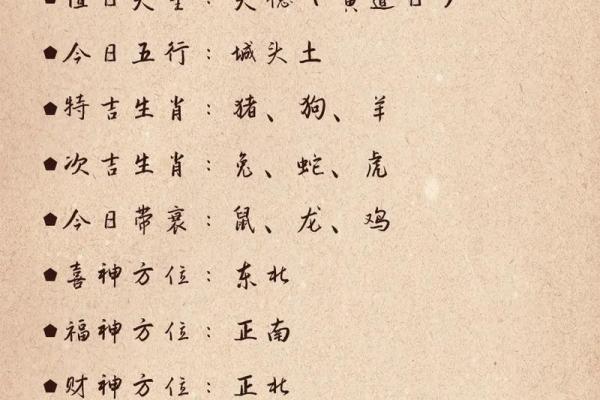 值日天星：天德（黄道日）
今日五行：城头土
特吉生肖：猪、狗、羊
次吉生肖：兔、蛇、虎
今日带衰：鼠、龙、鸡
喜神方位：东北
福神方位：正南
财神方位：正北